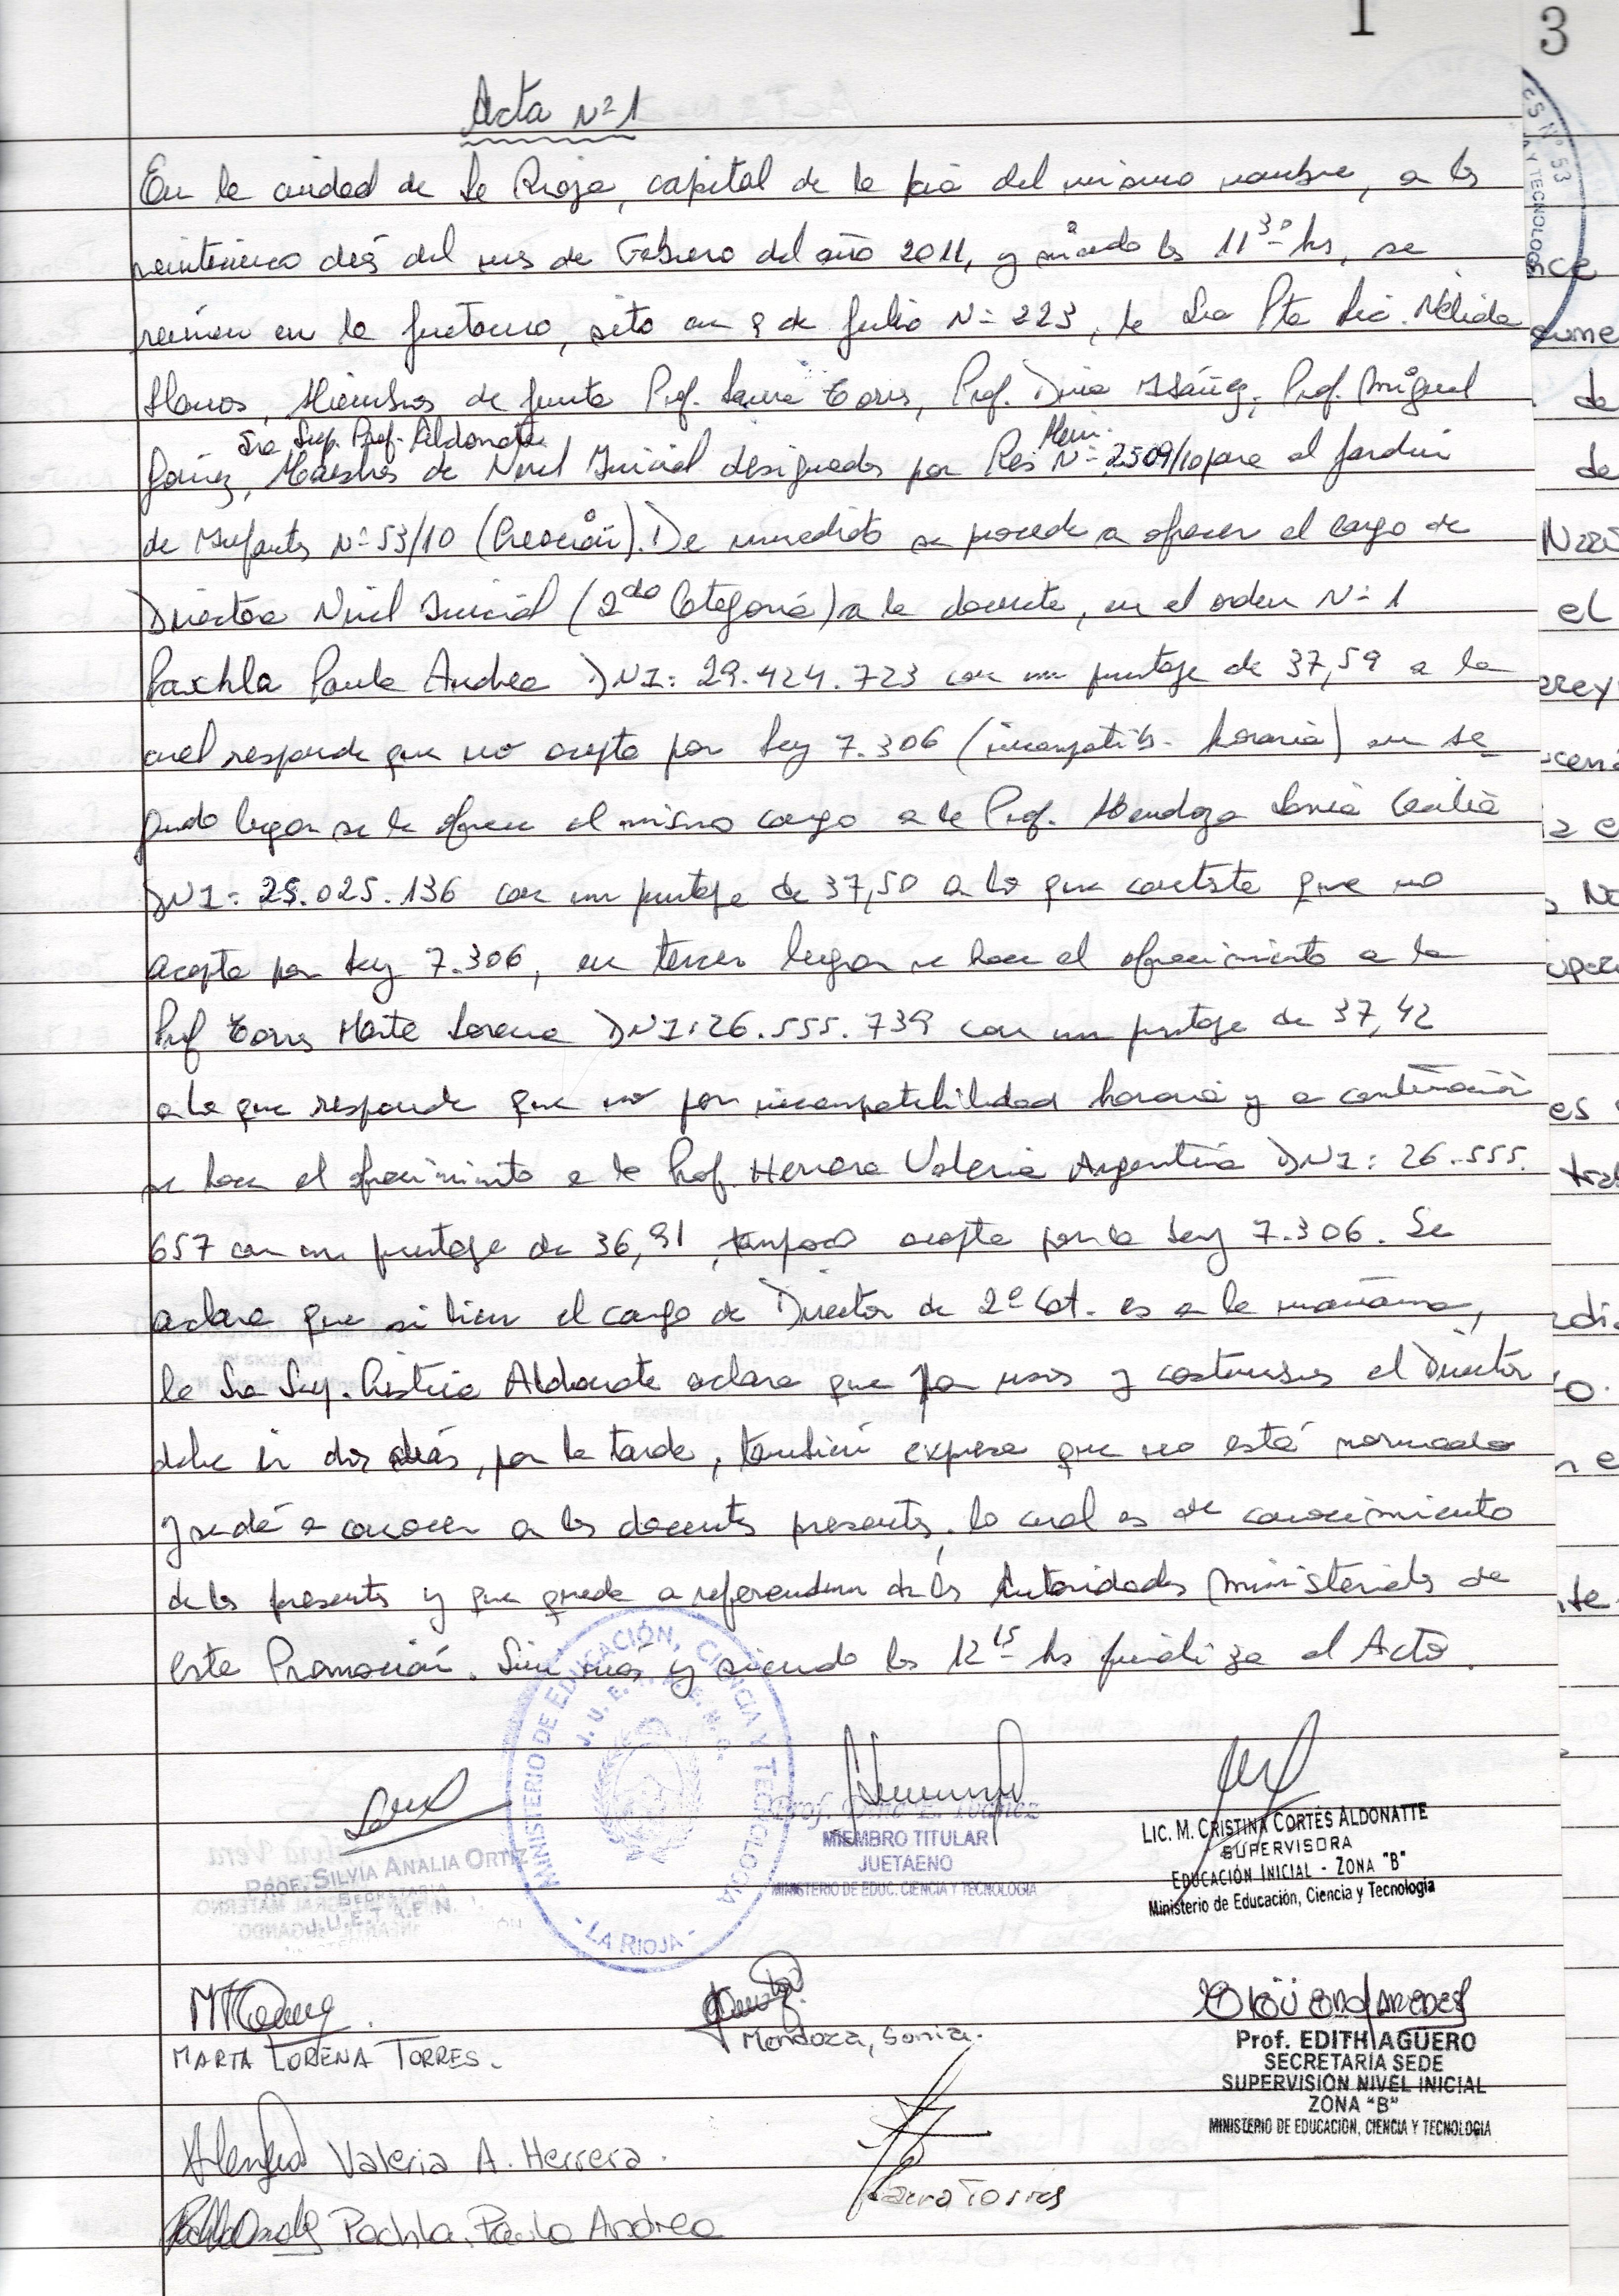 1 3
Acta Nº 1
En la ciudad de La Rioja, capital de la pcia del mismo nombre, a los
veinticinco días del mes de Febrero del año 2011, y siendo las 11 30 hs, se
reúnen en la Juetaeno, sito en 9 de Julio Nº 223, la Sra Pta Lic. Nélida
Llanos, Miembros de Junta Prof. Laura Torres, Prof. Dina Ibáñez, Prof. Miguel
Sra Sup. Prof. Aldonatte Min.
Gómez, Maestros de Nivel Inicial designados por Res Nº 2509/10 para el Jardín
de Infantes Nº 53/10 (Creación). De inmediato se procede a ofrecer el cargo de
Directora Nivel Inicial (2da Categoría) a la docente, en el orden Nº 1
Pachla Paula Andrea DNI: 29.424.723 con un puntaje de 37,59 a la
cual responde que no acepta por Ley 7.306 (incompatib. horaria) en se
gundo lugar se le ofrece el mismo cargo a la Prof. Mendoza Sonia Cecilia
DNI: 25.025.136 con un puntaje de 37,50 a lo que contesta que no
acepta por Ley 7.306, en tercer lugar se hace el ofrecimiento a la
Prof Torres Marta Lorena DNI: 26.555.739 con un puntaje de 37,42
a lo que responde que no por incompatibilidad horaria y a continuación
se hace el ofrecimiento a la Prof. Herrera Valeria Argentina DNI: 26.555.
657 con un puntaje de 36,91, tampoco acepta por la Ley 7.306. Se
aclara que si bien el cargo de Director de 2º Cat. es a la mañana,
la Sra Sup. Cristina Aldonatte aclara que por usos y costumbres el Director
debe ir dos días, por la tarde, también expresa que no está normado
y se dá a conocer a los docentes presentes, lo cual es de conocimiento
de los presentes y que queda a referendum de las Autoridades Ministeriales de
esta Promoción. Sin más y siendo las 12 15 hs finaliza el Acto.
MINISTERIO DE EDUCACIÓN, CIENCIA Y TECNOLOGIA
J.U.E.T.A.E.N.O.
- LA RIOJA -
PROF. SILVIA ANALIA ORTIZ
SECRETARIA
J.U.E.T.A.E.N.
Prof. Dina E. Ibáñez
MIEMBRO TITULAR
JUETAENO
MINISTERIO DE EDUC. CIENCIA Y TECNOLOGIA
LIC. M. CRISTINA CORTÉS ALDONATTE
SUPERVISORA
EDUCACIÓN INICIAL - ZONA "B"
Ministerio de Educación, Ciencia y Tecnología
MARTA LORENA TORRES.
Mendoza, Sonia.
Prof. EDITH AGÜERO
SECRETARIA SEDE
SUPERVISIÓN NIVEL INICIAL
ZONA "B"
MINISTERIO DE EDUCACION, CIENCIA Y TECNOLOGIA
Valeria A. Herrera.
Laura Torres
Pachla, Paula Andrea